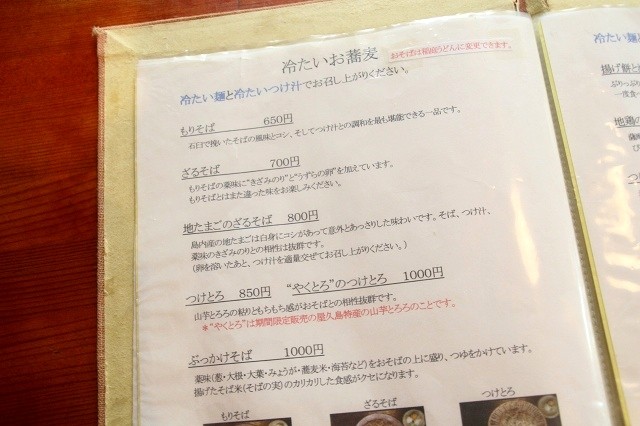 冷たいお蕎麦
おそばは稲庭うどんに変更できます。
冷たい麺と冷たいつけ汁でお召し上がりください。
もりそば 650円
石臼で挽いたそばの風味とコシ、そしてつけ汁との調和を最も堪能できる一品です。
ざるそば 700円
もりそばの薬味に"きざみのり"と"うずらの卵"を加えています。
もりそばとはまた違った味をお楽しみください。
地たまごのざるそば 800円
島内産の地たまごは白身にコシがあって意外とあっさりした味わいです。そば、つけ汁、
薬味のきざみのりとの相性は抜群です。
(卵を溶いたあと、つけ汁を適量交ぜてお召し上がりください。)
つけとろ 850円 "やくとろ"のつけとろ 1000円
山芋とろろの粘りともちもち感がおそばとの相性抜群です。
*"やくとろ"は期間限定販売の屋久島特産の山芋とろろのことです。
ぶっかけそば 1000円
薬味(葱・大根・大葉・みょうが・蕎麦米・海苔など)をおそばの上に盛り、つゆをかけています。
揚げたそば米(そばの実)のカリカリした食感がクセになります。
もりそば ざるそば つけとろ
冷たい麺
揚げ餅と
ぷりっぷり
一度食
地鶏の
つ